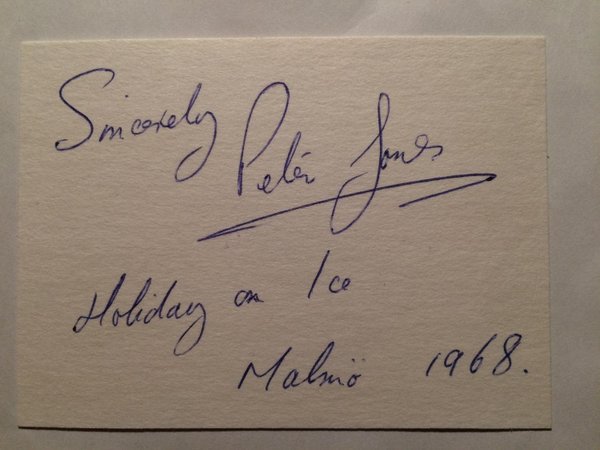 Sincerely
Peter Jones
Holiday on Ice
Malmö 1968.